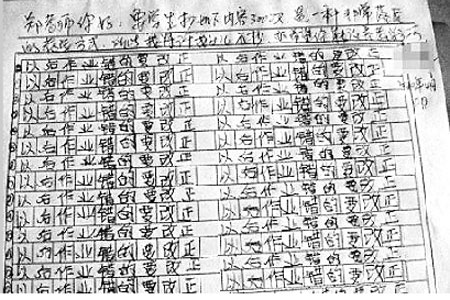 老师你好：要学生抄如下内容300次 是一种非常落后
的教育方式
以后作业错的要改正 以后作业错的要改正
以后作业错的要改正 以后作业错的要改正
以后作业错的要改正 以后作业错的要改正
以后作业错的要改正 以后作业错的要改正
以后作业错的要改正 以后作业错的要改正
以后作业错的要改正 以后作业错的要改正
以后作业错的要改正 以后作业错的要改正
以后作业错的要改正 以后作业错的要改正
以后作业错的要改正 以后作业错的要改正
以后作业错的要改正 以后作业错的要改正
以后作业错的要改正 以后作业错的要改正
以后作业错的要改正 以后作业错的要改正
以后作业错的要改正 以后作业错的要改正
以后作业错的要改正 以后作业错的要改正